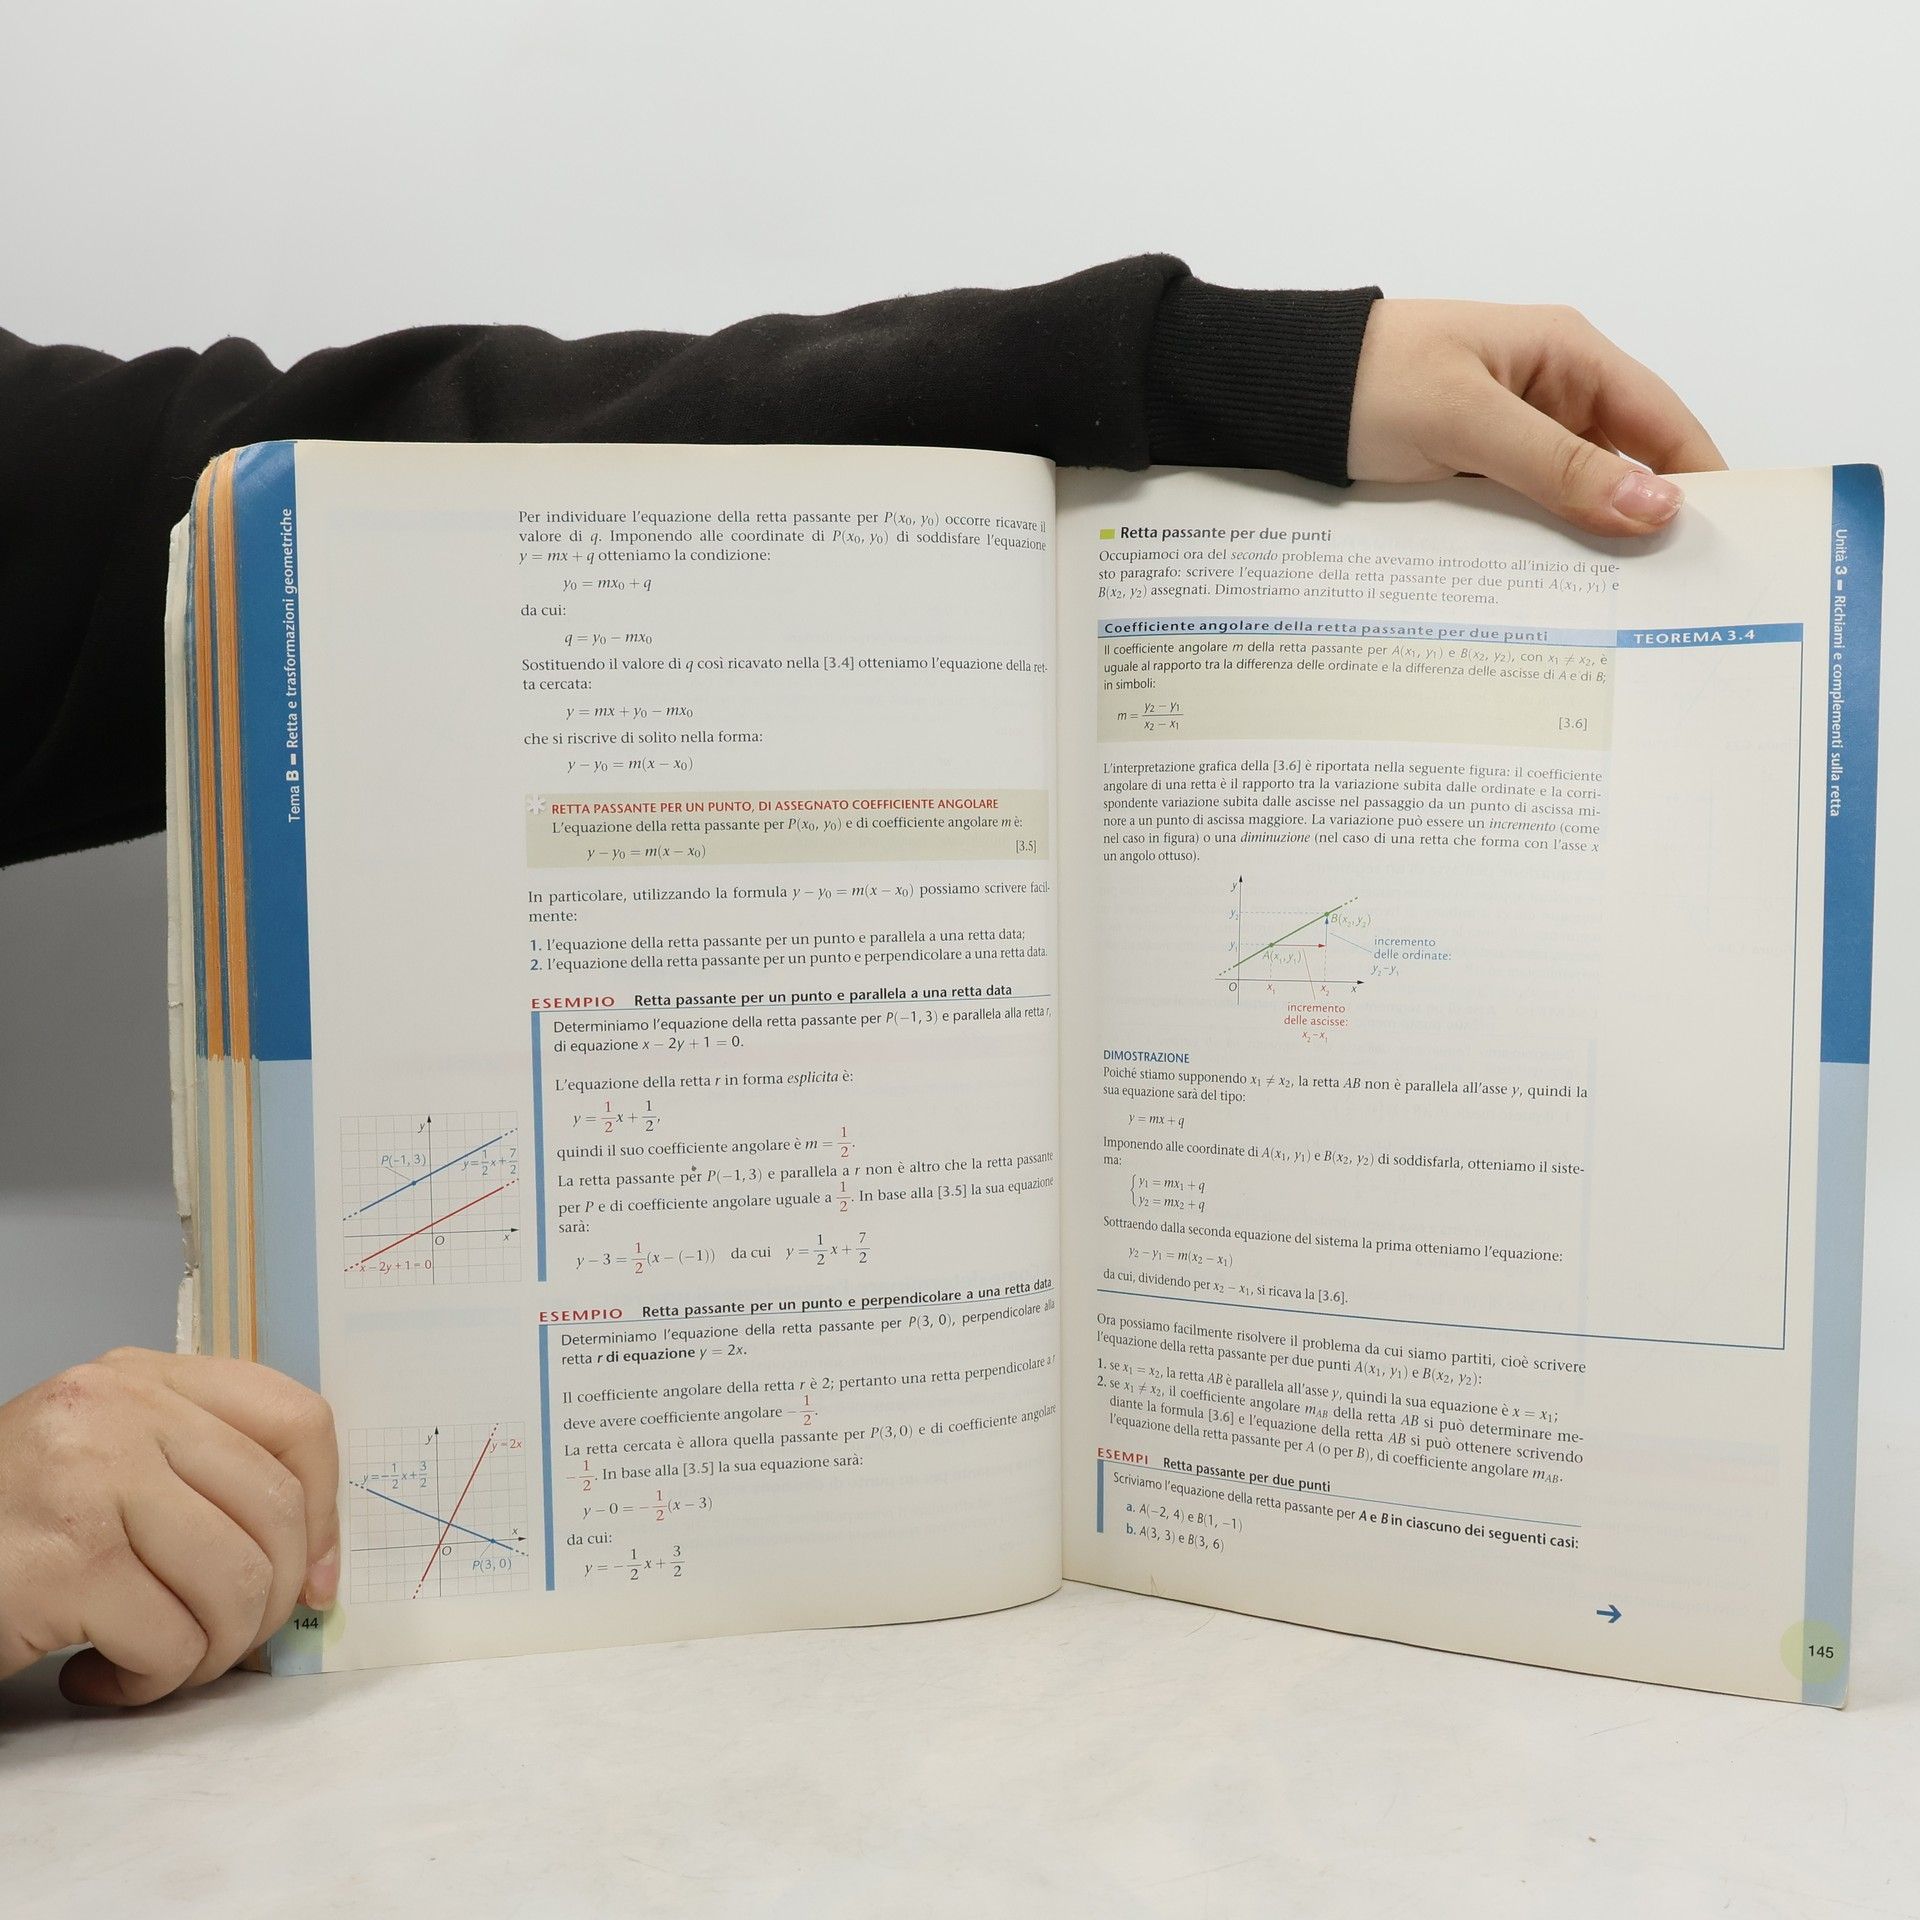 Tema B – Retta e trasformazioni geometriche
Per individuare l'equazione della retta passante per P(x₀, y₀) occorre ricavare il
valore di q. Imponendo alle coordinate di P(x₀, y₀) di soddisfare l'equazione
y = mx + q otteniamo la condizione:
y₀ = mx₀ + q
da cui:
q = y₀ − mx₀
Sostituendo il valore di q così ricavato nella [3.4] otteniamo l'equazione della ret-
ta cercata:
y = mx + y₀ − mx₀
che si riscrive di solito nella forma:
y − y₀ = m(x − x₀)
RETTA PASSANTE PER UN PUNTO, DI ASSEGNATO COEFFICIENTE ANGOLARE
L'equazione della retta passante per P(x₀, y₀) e di coefficiente angolare m è:
y − y₀ = m(x − x₀) [3.5]
In particolare, utilizzando la formula y − y₀ = m(x − x₀) possiamo scrivere facil-
mente:
1. l'equazione della retta passante per un punto e parallela a una retta data;
2. l'equazione della retta passante per un punto e perpendicolare a una retta data.
ESEMPIO Retta passante per un punto e parallela a una retta data
Determiniamo l'equazione della retta passante per P(−1, 3) e parallela alla retta r,
di equazione x − 2y + 1 = 0.
L'equazione della retta r in forma esplicita è:
y = 1/2 x + 1/2,
quindi il suo coefficiente angolare è m = 1/2.
La retta passante per P(−1, 3) e parallela a r non è altro che la retta passante
per P e di coefficiente angolare uguale a 1/2. In base alla [3.5] la sua equazione
sarà:
y − 3 = 1/2 (x − (−1)) da cui y = 1/2 x + 7/2
y
P(−1, 3)
y = 1/2 x + 7/2
O
x
x − 2y + 1 = 0
ESEMPIO Retta passante per un punto e perpendicolare a una retta data
Determiniamo l'equazione della retta passante per P(3, 0), perpendicolare alla
retta r di equazione y = 2x.
Il coefficiente angolare della retta r è 2; pertanto una retta perpendicolare a r
deve avere coefficiente angolare −1/2.
La retta cercata è allora quella passante per P(3, 0) e di coefficiente angolare
−1/2. In base alla [3.5] la sua equazione sarà:
y − 0 = −1/2 (x − 3)
da cui:
y = −1/2 x + 3/2
y
y = 2x
y = −1/2 x + 3/2
x
O
P(3, 0)
144
Unità 3 – Richiami e complementi sulla retta
Retta passante per due punti
Occupiamoci ora del secondo problema che avevamo introdotto all'inizio di que-
sto paragrafo: scrivere l'equazione della retta passante per due punti A(x₁, y₁) e
B(x₂, y₂) assegnati. Dimostriamo anzitutto il seguente teorema.
Coefficiente angolare della retta passante per due punti TEOREMA 3.4
Il coefficiente angolare m della retta passante per A(x₁, y₁) e B(x₂, y₂), con x₁ ≠ x₂, è
uguale al rapporto tra la differenza delle ordinate e la differenza delle ascisse di A e di B;
in simboli:
m = (y₂ − y₁)/(x₂ − x₁) [3.6]
L'interpretazione grafica della [3.6] è riportata nella seguente figura: il coefficiente
angolare di una retta è il rapporto tra la variazione subita dalle ordinate e la corri-
spondente variazione subita dalle ascisse nel passaggio da un punto di ascissa mi-
nore a un punto di ascissa maggiore. La variazione può essere un incremento (come
nel caso in figura) o una diminuzione (nel caso di una retta che forma con l'asse x
un angolo ottuso).
y
y₂
B(x₂, y₂)
y₁
A(x₁, y₁)
incremento
delle ordinate:
y₂−y₁
O x₁ x₂ x
incremento
delle ascisse:
x₂−x₁
DIMOSTRAZIONE
Poiché stiamo supponendo x₁ ≠ x₂, la retta AB non è parallela all'asse y, quindi la
sua equazione sarà del tipo:
y = mx + q
Imponendo alle coordinate di A(x₁, y₁) e B(x₂, y₂) di soddisfarla, otteniamo il siste-
ma:
{ y₁ = mx₁ + q
y₂ = mx₂ + q
Sottraendo dalla seconda equazione del sistema la prima otteniamo l'equazione:
y₂ − y₁ = m(x₂ − x₁)
da cui, dividendo per x₂ − x₁, si ricava la [3.6].
Ora possiamo facilmente risolvere il problema da cui siamo partiti, cioè scrivere
l'equazione della retta passante per due punti A(x₁, y₁) e B(x₂, y₂):
1. se x₁ = x₂, la retta AB è parallela all'asse y, quindi la sua equazione è x = x₁;
2. se x₁ ≠ x₂, il coefficiente angolare m_AB della retta AB si può determinare me-
diante la formula [3.6] e l'equazione della retta AB si può ottenere scrivendo
l'equazione della retta passante per A (o per B), di coefficiente angolare m_AB.
ESEMPI Retta passante per due punti
Scriviamo l'equazione della retta passante per A e B in ciascuno dei seguenti casi:
a. A(−2, 4) e B(1, −1)
b. A(3, 3) e B(3, 6)
145